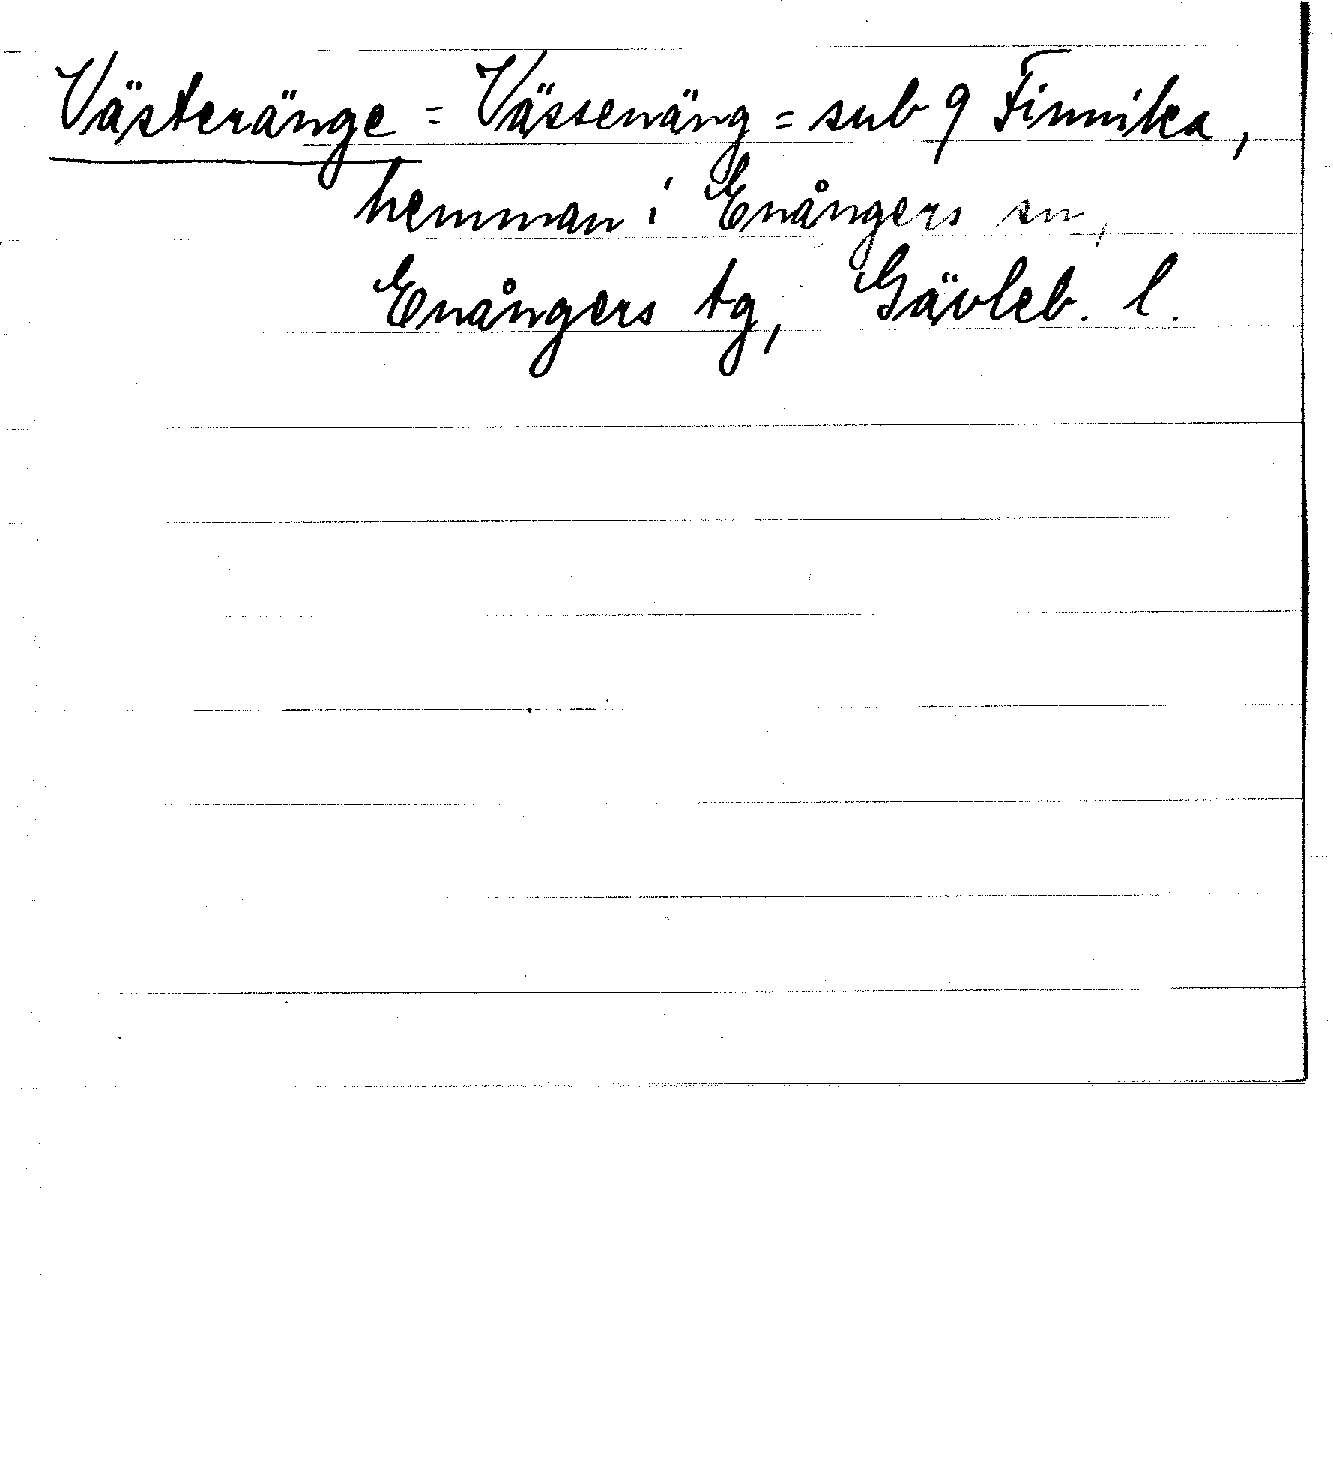 Västeränge = Vässenäng = sub 9 Finnika,
hemman i Enångers sn,
Enångers tg, Gävleb. l.